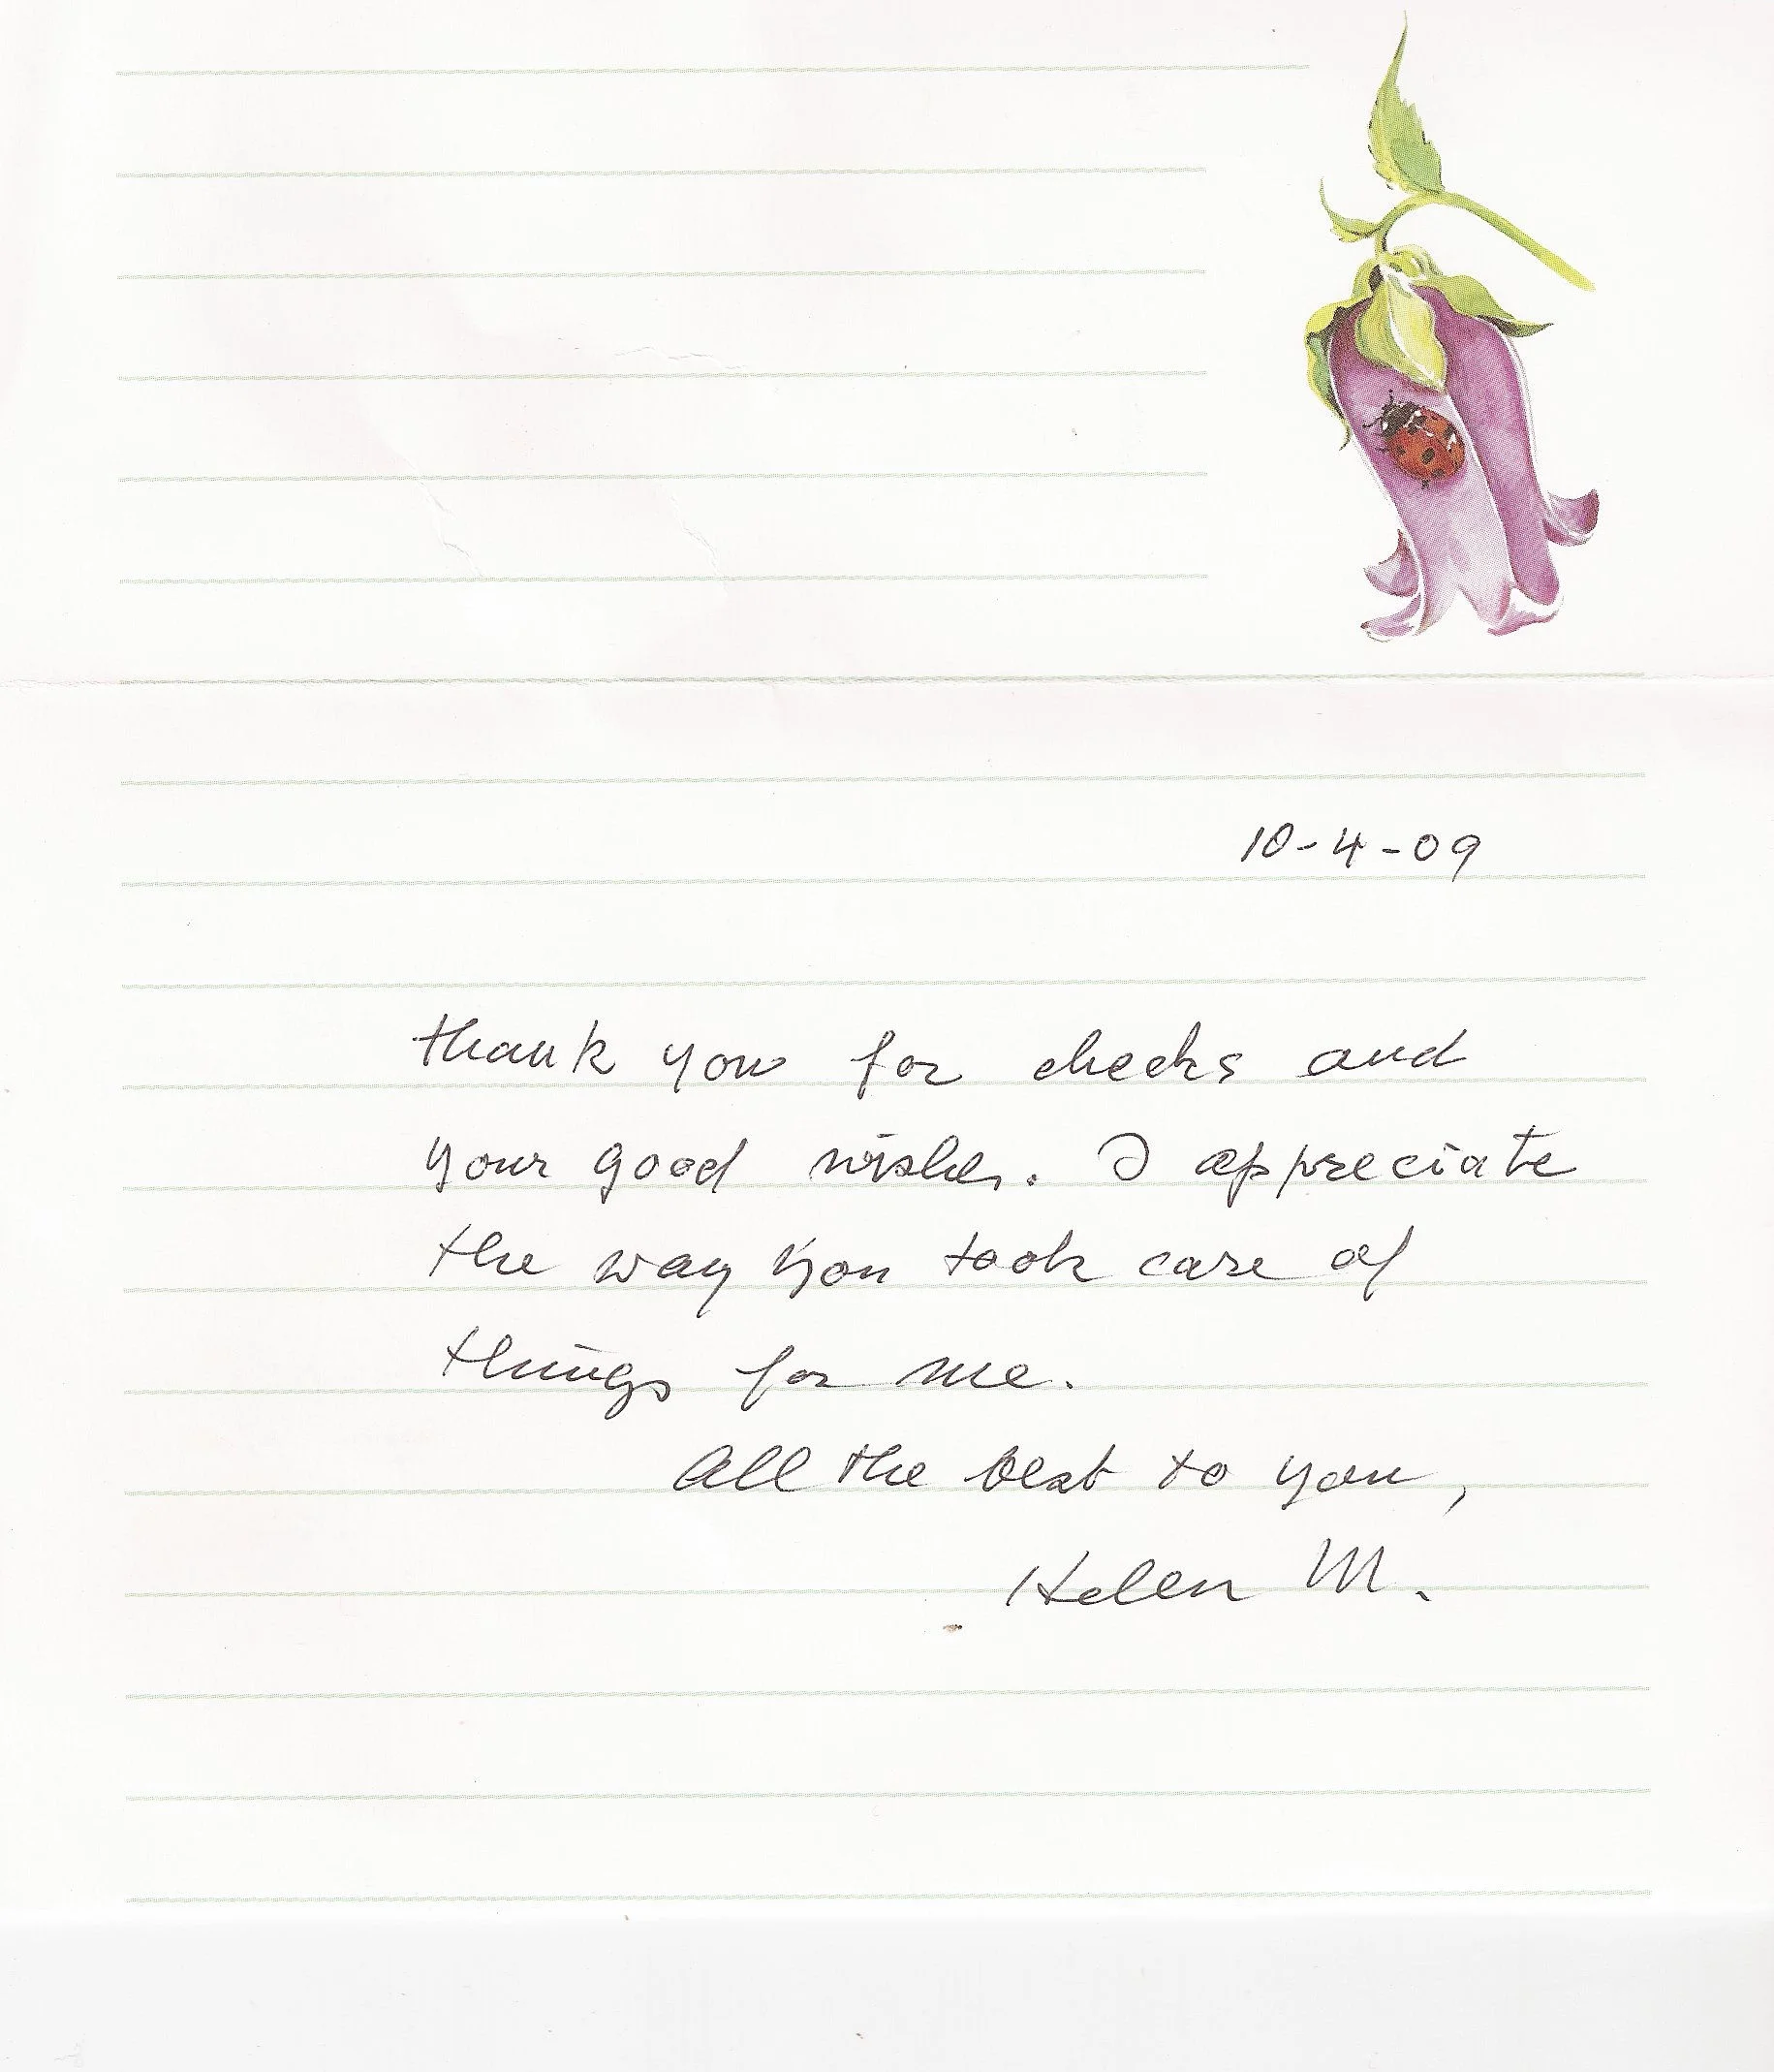 10-4-09
thank you for checks and
your good wishes. I appreciate
the way you took care of
things for me.
All the best to you,
Helen M.